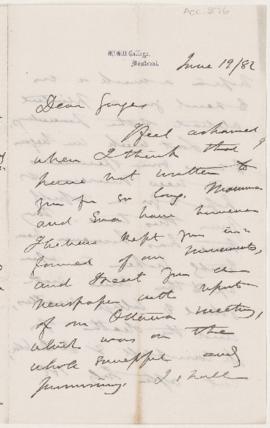 ACC. 576
McGill College,
Montreal.
June 19/82
Dear George
I feel ashamed
when I think that I
have not written to
you for so long. Mamma
and Eva have however
I believe kept you in-
formed of our movements,
and I sent you a
newspaper with report
of our Ottawa meeting,
which was on the
whole successful and
promising. I shall